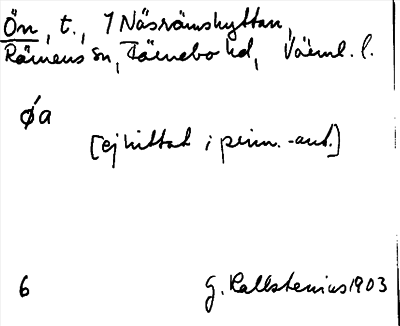 Ön, t., 7 Näsrämshyttan,
Rämens sn, Färnebo hd, Värml. l.
ǿa
[ej hittat i prim.-ant.]
6 G. Kallstenius 1903